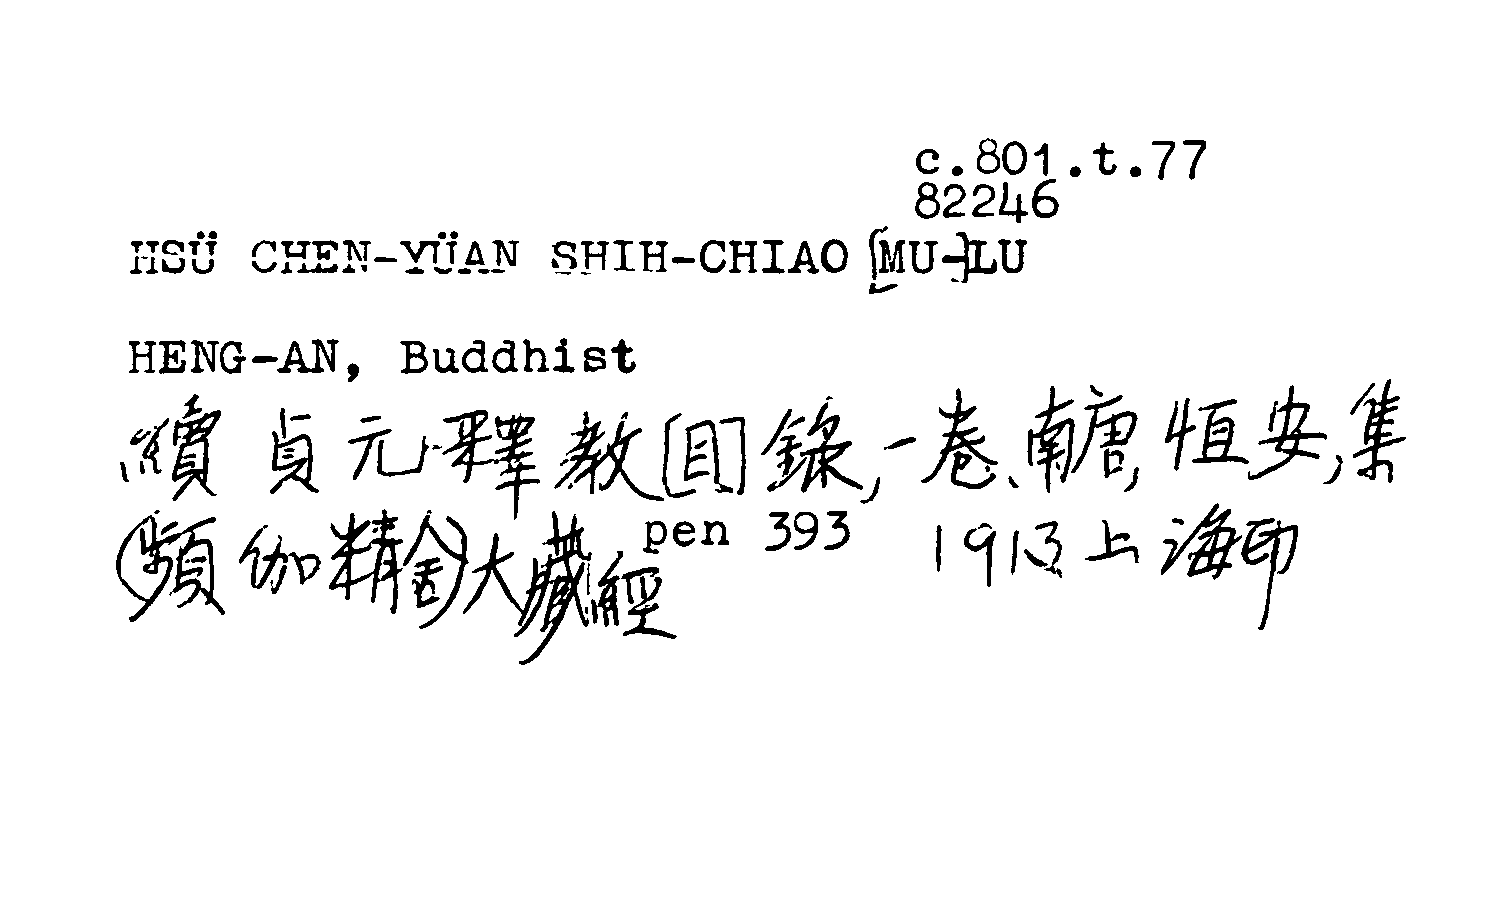 c.801.t.77
82246
HSÜ CHEN-YÜAN SHIH-CHIAO [MU-]LU
HENG-AN, Buddhist
續貞元釋教[目]錄,一卷、南唐,恒安,集
(頻伽精舍)大藏經 pen 393 1913上海印